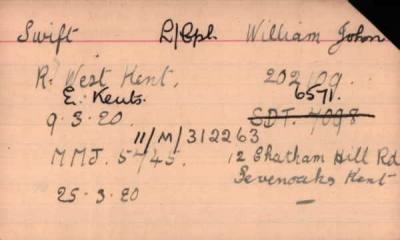 Swift L/Cpl. William John
R. West Kent. 202109.
E. Kents. 6571.
9.3.20. SDT. 7098
11/M/312263
MMJ. 5745. 12 Chatham Hill Rd
Sevenoaks Kent
25.3.20